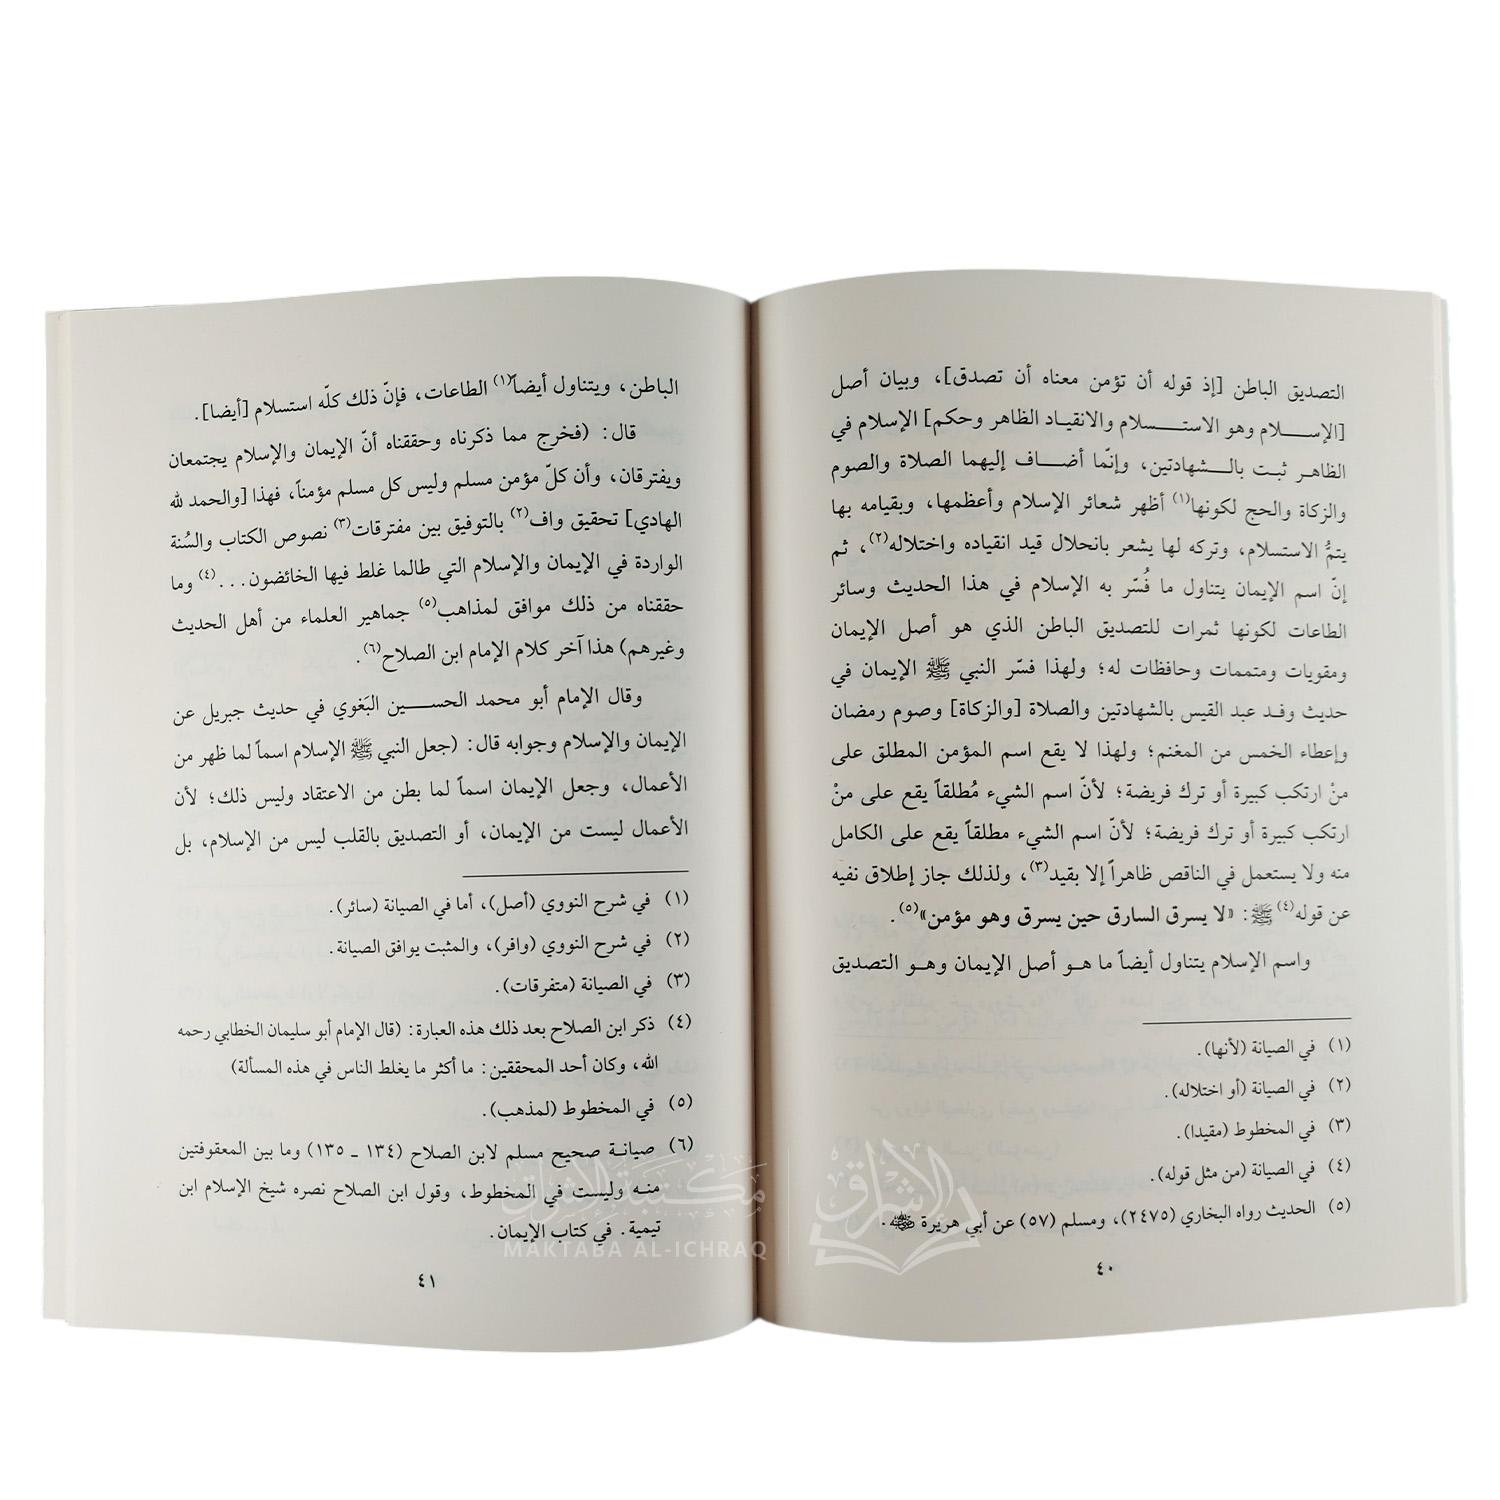 التصديق الباطن [إذ قوله أن تؤمن معناه أن تصدق]، وبيان أصل
[الإسلام وهو الاستسلام والانقياد الظاهر وحكم] الإسلام في
الظاهر ثبت بالشهادتين، وإنّما أضاف إليهما الصلاة والصوم
والزكاة والحج لكونها(١) أظهر شعائر الإسلام وأعظمها، وبقيامه بها
يتمُّ الاستسلام، وتركه لها يشعر بانحلال قيد انقياده واختلاله(٢)، ثم
إنّ اسم الإيمان يتناول ما فُسّر به الإسلام في هذا الحديث وسائر
الطاعات لكونها ثمرات للتصديق الباطن الذي هو أصل الإيمان
ومقويات ومتممات وحافظات له؛ ولهذا فسّر النبي ﷺ الإيمان في
حديث وفد عبد القيس بالشهادتين والصلاة [والزكاة] وصوم رمضان
وإعطاء الخمس من المغنم؛ ولهذا لا يقع اسم المؤمن المطلق على
منْ ارتكب كبيرة أو ترك فريضة؛ لأنّ اسم الشيء مُطلقاً يقع على منْ
ارتكب كبيرة أو ترك فريضة؛ لأنّ اسم الشيء مطلقاً يقع على الكامل
منه ولا يستعمل في الناقص ظاهراً إلا بقيد(٣)، ولذلك جاز إطلاق نفيه
عن قوله(٤) ﷺ: «لا يسرق السارق حين يسرق وهو مؤمن»(٥).
واسم الإسلام يتناول أيضاً ما هو أصل الإيمان وهو التصديق
(١) في الصيانة (لأنها).
(٢) في الصيانة (أو اختلاله).
(٣) في المخطوط (مقيدا).
(٤) في الصيانة (من مثل قوله).
(٥) الحديث رواه البخاري (٢٤٧٥)، ومسلم (٥٧) عن أبي هريرة رضي الله عنه.
٤٠
الباطن، ويتناول أيضاً(١) الطاعات، فإنّ ذلك كلّه استسلام [أيضا].
قال: (فخرج مما ذكرناه وحققناه أنّ الإيمان والإسلام يجتمعان
ويفترقان، وأن كلّ مؤمن مسلم وليس كل مسلم مؤمناً، فهذا [والحمد لله
الهادي] تحقيق واف(٢) بالتوفيق بين مفترقات(٣) نصوص الكتاب والسُنة
الواردة في الإيمان والإسلام التي طالما غلط فيها الخائضون...(٤) وما
حققناه من ذلك موافق لمذاهب(٥) جماهير العلماء من أهل الحديث
وغيرهم) هذا آخر كلام الإمام ابن الصلاح(٦).
وقال الإمام أبو محمد الحسين البَغوي في حديث جبريل عن
الإيمان والإسلام وجوابه قال: (جعل النبي ﷺ الإسلام اسماً لما ظهر من
الأعمال، وجعل الإيمان اسماً لما بطن من الاعتقاد وليس ذلك؛ لأن
الأعمال ليست من الإيمان، أو التصديق بالقلب ليس من الإسلام، بل
(١) في شرح النووي (أصل)، أما في الصيانة (سائر).
(٢) في شرح النووي (وافر)، والمثبت يوافق الصيانة.
(٣) في الصيانة (متفرقات).
(٤) ذكر ابن الصلاح بعد ذلك هذه العبارة: (قال الإمام أبو سليمان الخطابي رحمه
الله، وكان أحد المحققين: ما أكثر ما يغلط الناس في هذه المسألة)
(٥) في المخطوط (لمذهب).
(٦) صيانة صحيح مسلم لابن الصلاح (١٣٤ ـ ١٣٥) وما بين المعقوفتين
منه وليست في المخطوط، وقول ابن الصلاح نصره شيخ الإسلام ابن
تيمية. في كتاب الإيمان.
٤١
مكتبة الإشراق
MAKTABA AL-ICHRAQ
الإشراق